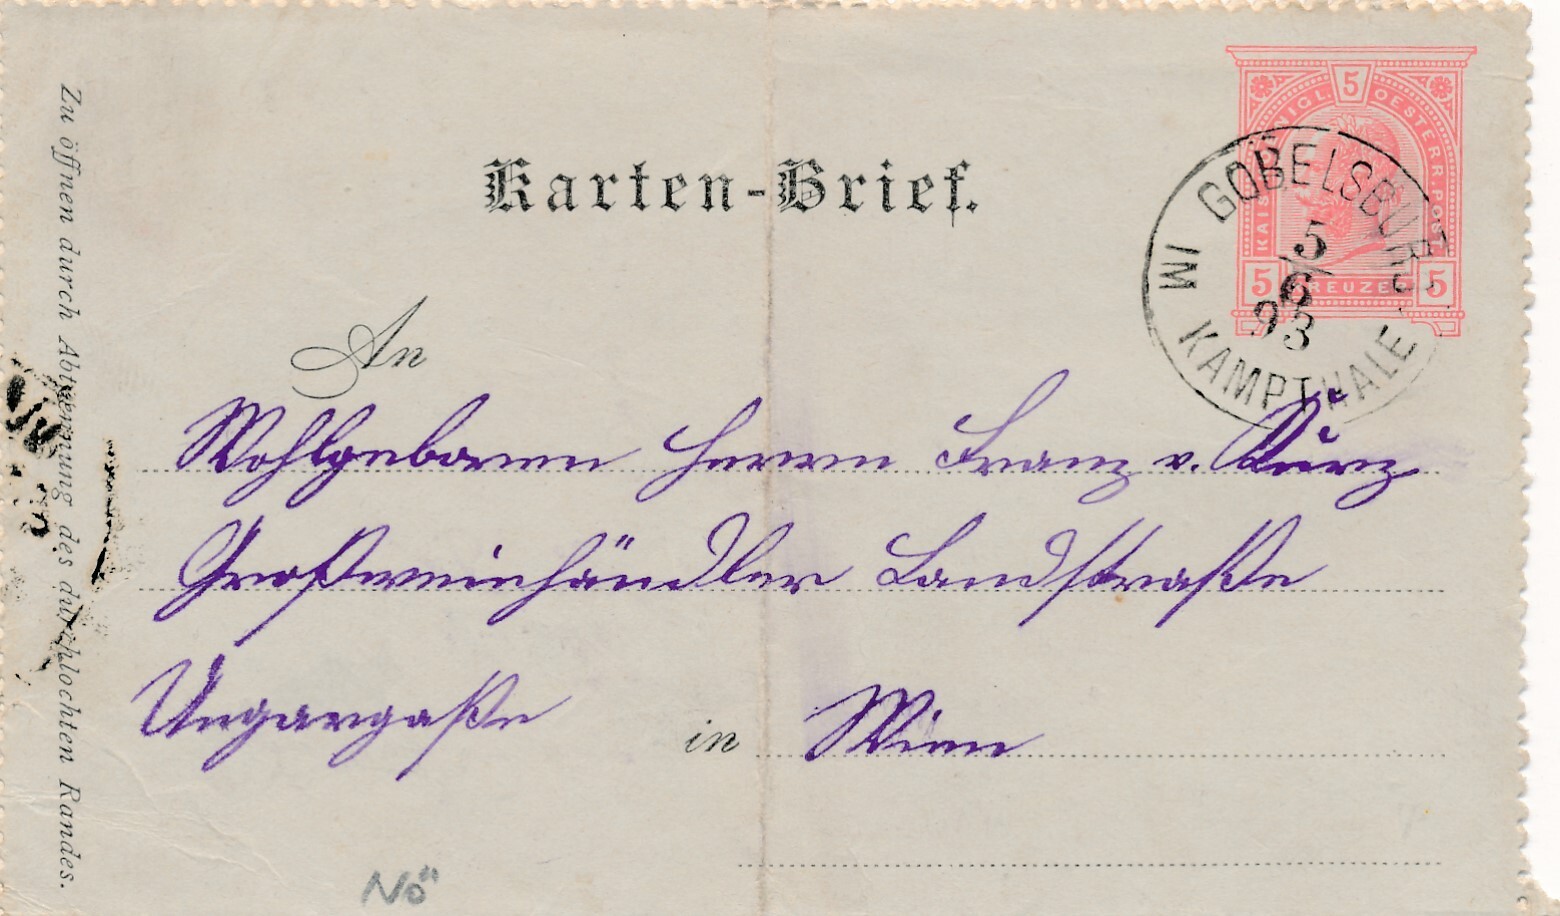 Karten-Brief.
5
KAIS. KÖNIGL. OESTERR. POST
5 KREUZER 5
GOBELSBURG
IM KAMPTHALE
5
6
93
An
Wohlgeboren Herrn Franz v. Kurz
Großweinhändler Landstraße
Ungargaße in Wien
Zu öffnen durch Abtrennung des durchlochten Randes.
NÖ